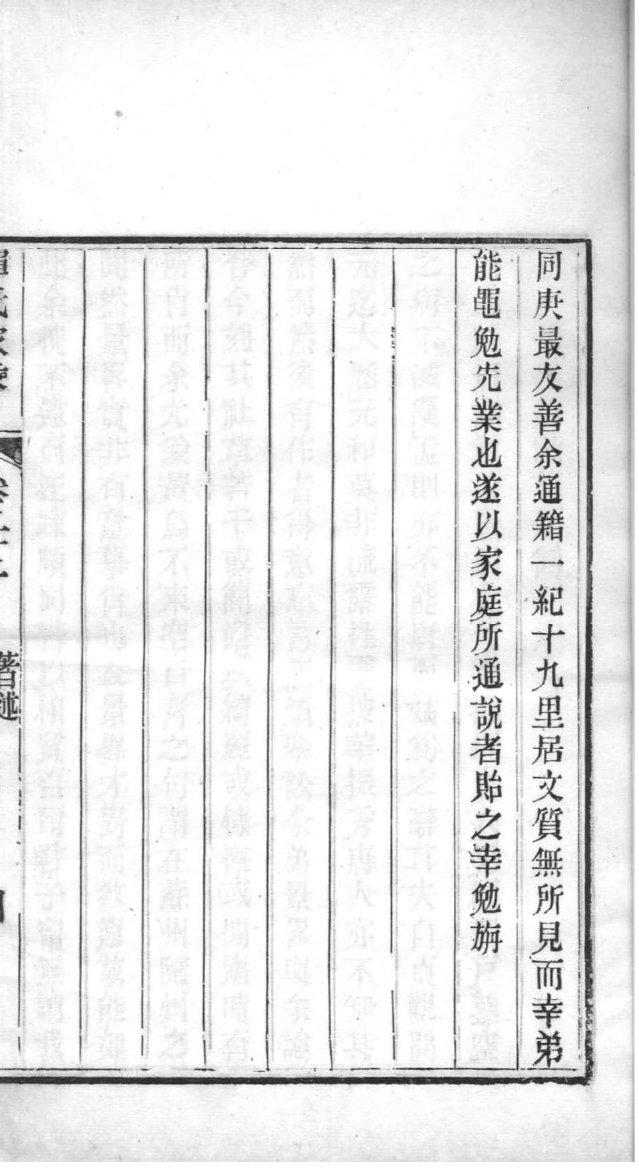 同庚最友善余通籍一紀十九里居文質無所見而幸弟
能黽勉先業也遂以家庭所通說者貽之幸勉旃
著述